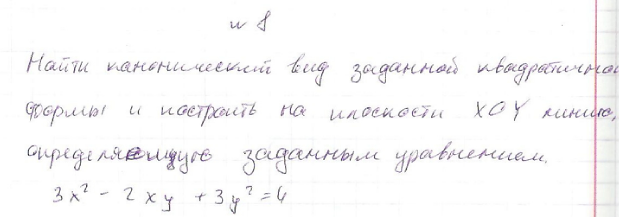 № 8
Найти канонический вид заданной квадратичной
формы и построить на плоскости XOY линию,
определяемую заданным уравнением.
3x² - 2xy + 3y² = 4